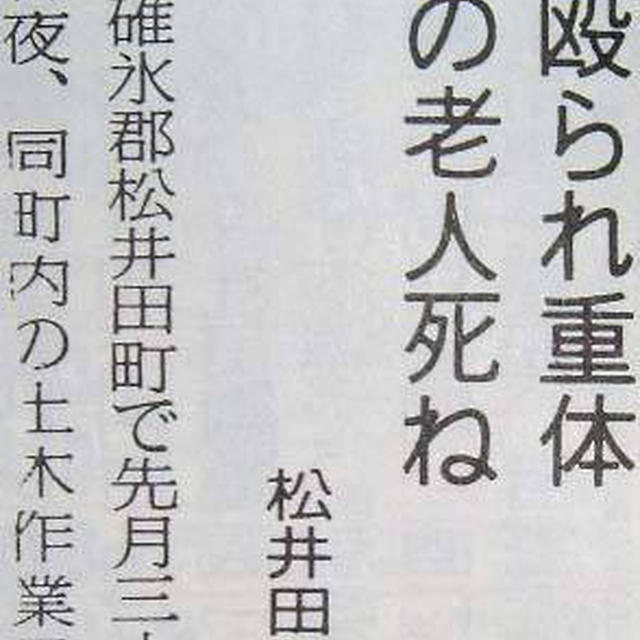 殴られ重体
の老人死ね
松井田
碓氷郡松井田町で先月三
夜、同町内の土木作業